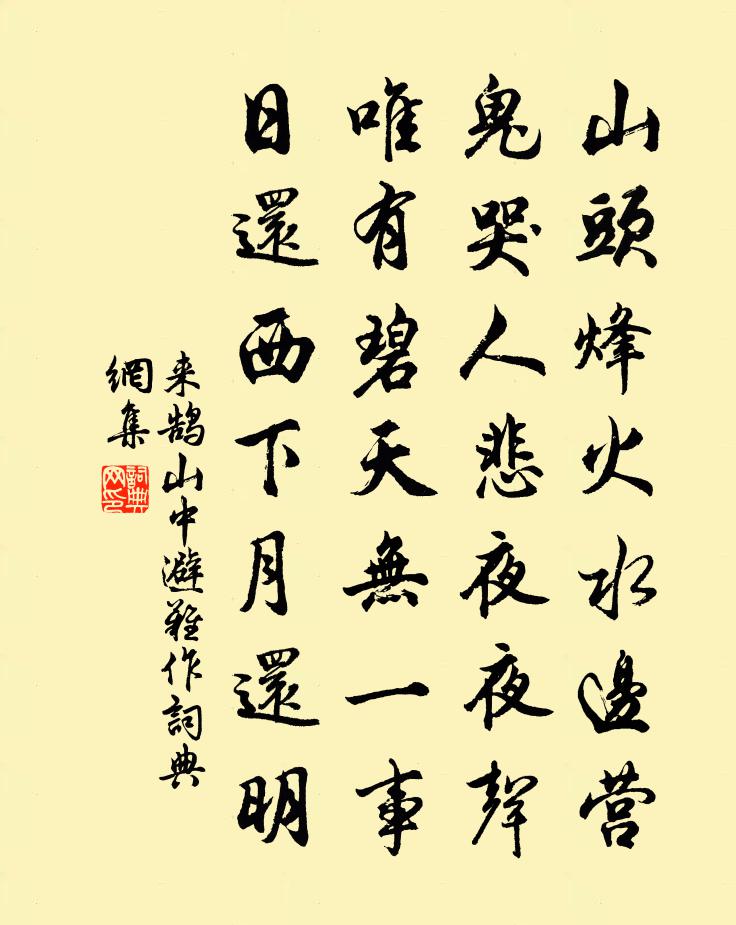 山頭烽火水邊营
鬼哭人悲夜夜聲
唯有碧天無一事
日還西下月還明
来鹄山中避難作詞典
網集
詞典
网印